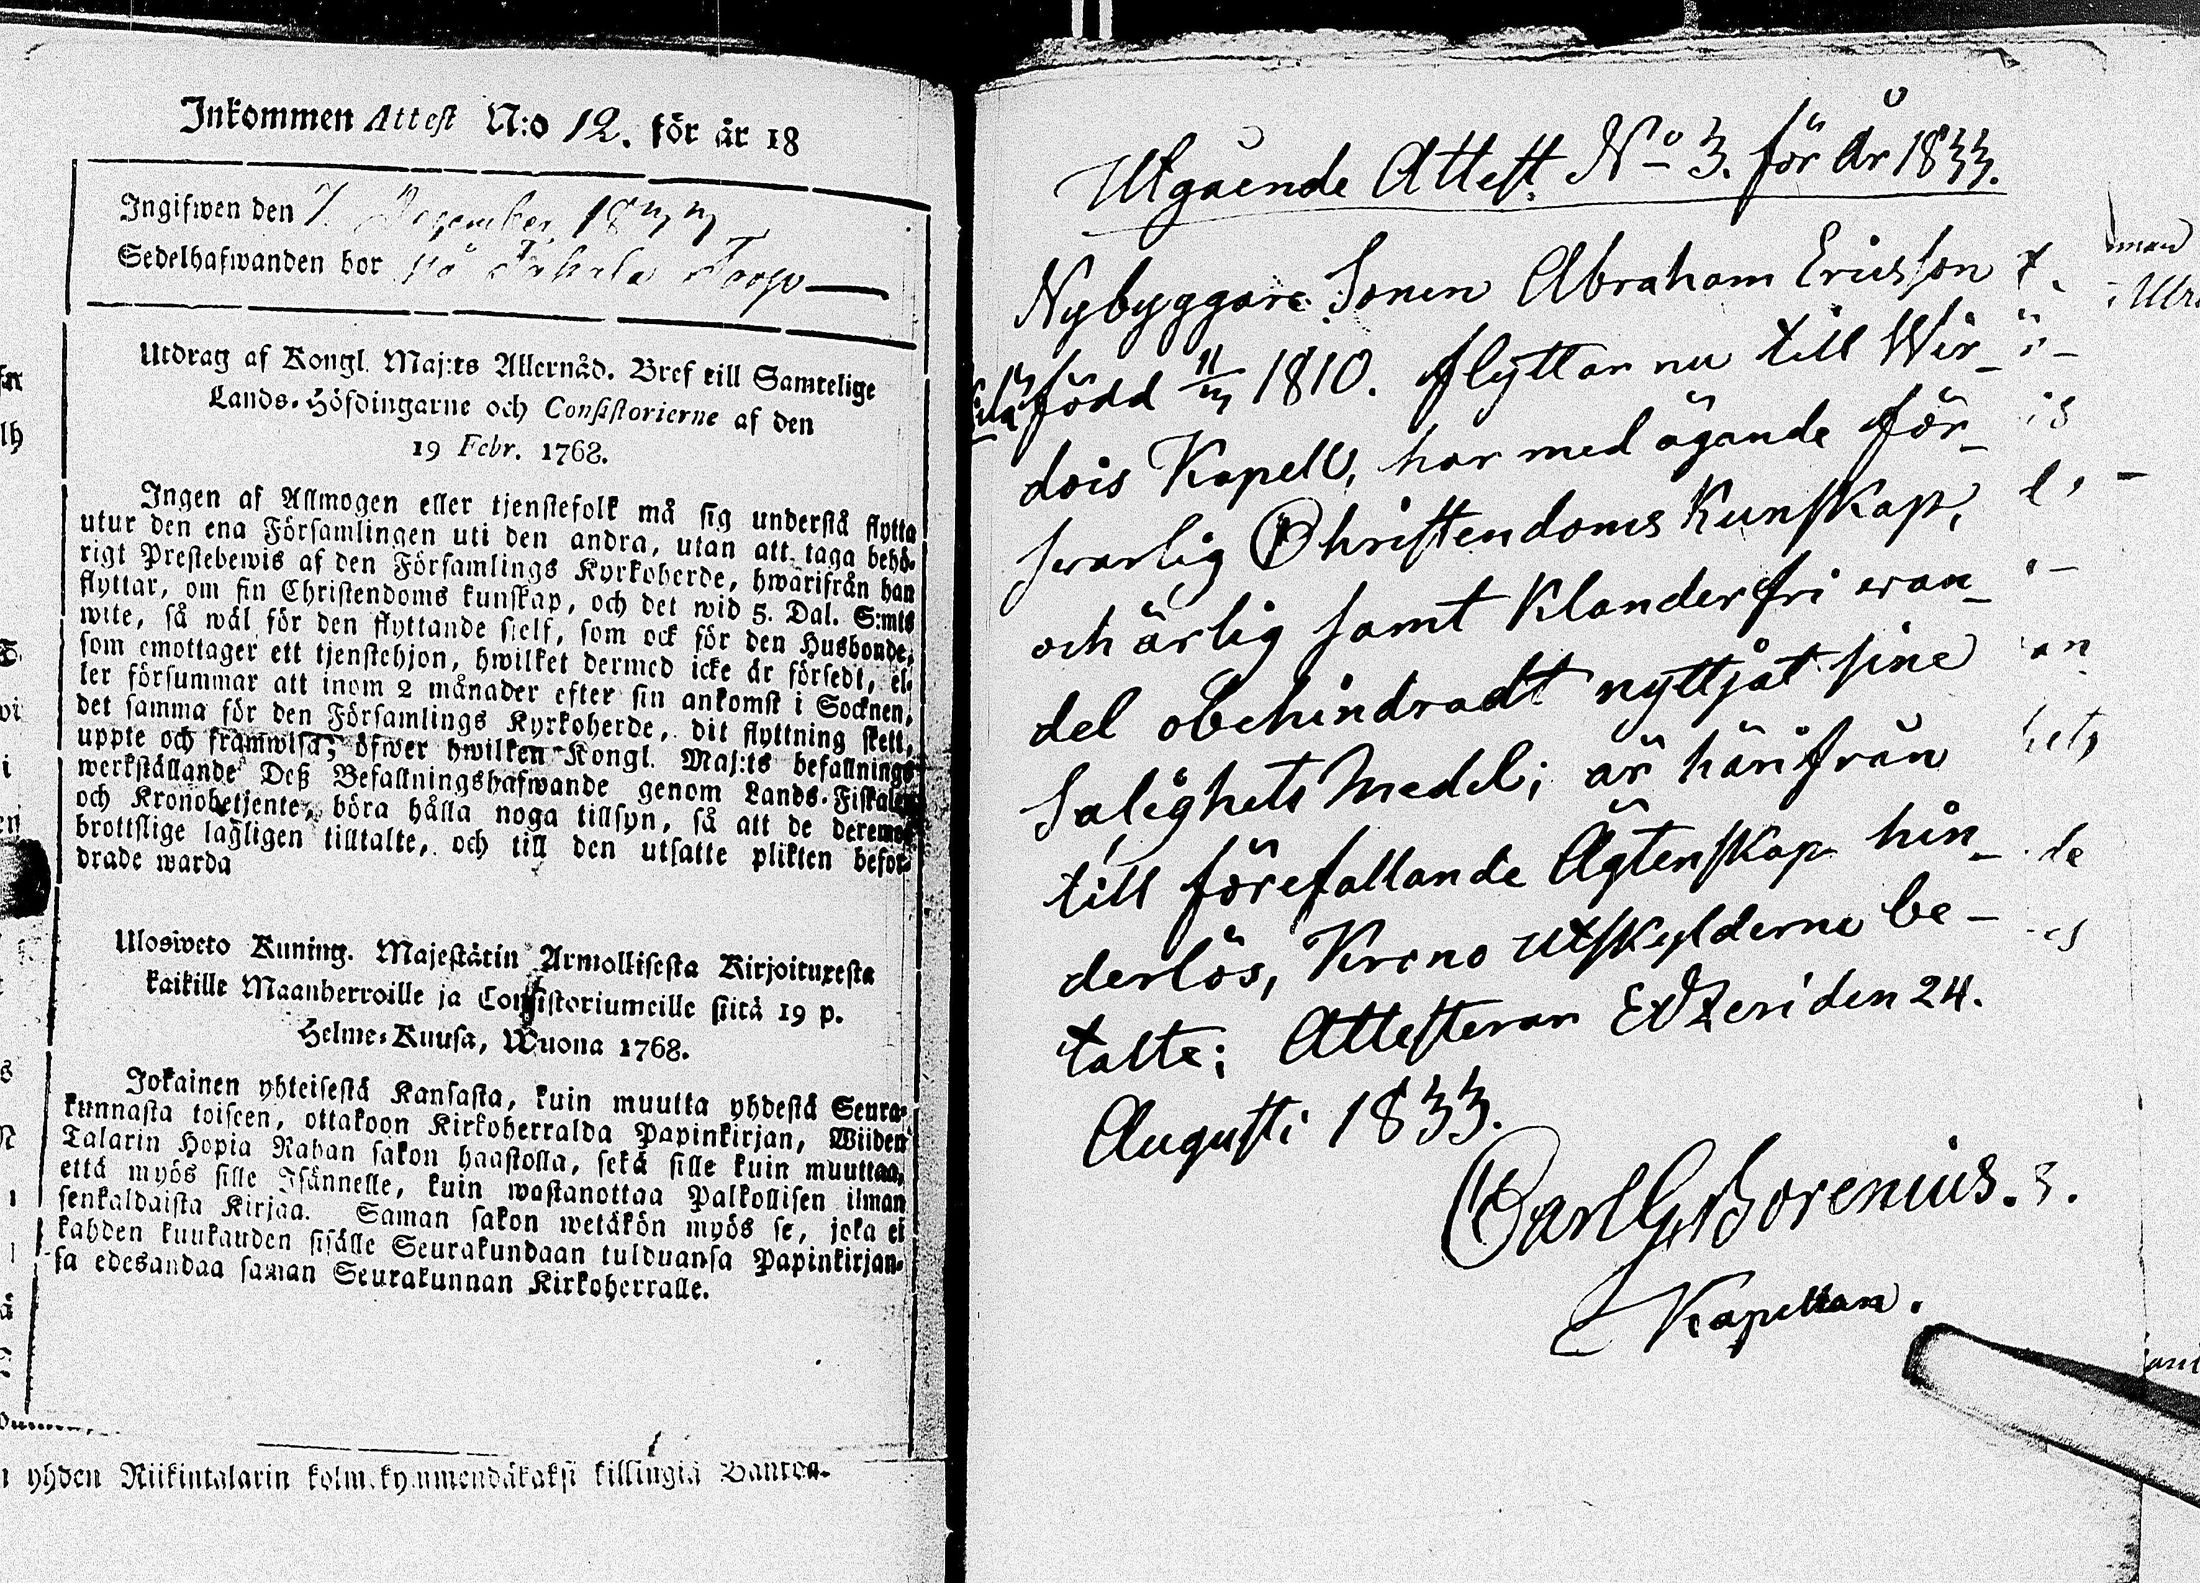 Inkommen Attest N:o 12. för år 18
Ingifwen den 7. December 1833
Sedelhafwanden bor på Torp
Utdrag af Kongl. Maj:ts Allernåd. Bref till Samtelige
Lands-Höfdingarne och Consistorierne af den
19 Febr. 1768.
Ingen af Allmogen eller tjenstefolk må sig understå flytta
utur den ena Församlingen uti den andra, utan att taga behö-
rigt Prestebewis af den Församlings Kyrkoherde, hwarifrån han
flyttar, om sin Christendoms kunskap, och det wid 5. Dal. S:mts
wite, så wäl för den flyttande sielf, som ock för den Husbonde,
som emottager ett tjenstehjon, hwilket dermed icke är försedt, el-
ler försummar att inom 2 månader efter sin ankomst i Socknen,
det samma för den Församlings Kyrkoherde, dit flyttning skett,
uppte och framwisa; öfwer hwilken Kongl. Maj:ts befallnings
werkställande Deß Befallningshafwande genom Lands-Fiskaler
och Kronobetjente, böra hålla noga tillsyn, så att de deremot
brottslige lagligen tilltalte, och till den utsatte plikten befor-
drade warda
Ulosweto Kuning. Majestätin Armollisesta Kirjoituxesta
kaikille Maanherroille ja Consistoriumeille siitä 19 p.
Helme-Kuusa, Wuona 1768.
Jokainen yhteisestä Kansasta, kuin muutta yhdestä Seura-
kunnasta toiseen, ottakoon Kirkoherralda Papinkirjan, Wiiden
Talarin Hopia Rahan sakon haastolla, sekä sille kuin muuttaa,
että myös sille Isännelle, kuin wastanottaa Palkollisen ilman
senkaldaista Kirjaa. Saman sakon wetäkön myös se, joka ei
kahden kuukauden sisälle Seurakundaan tulduansa Papinkirjan-
sa edesandaa saman Seurakunnan Kirkoherralle.
yhden Riikintalarin kolmekymmendäkaksi killingiä Bancoa.
Utgående Attest No 3. för År 1833.
Nybyggare Sonen Abraham Ericsson
född 11/3 1810. flyttar nu till Wir-
dois Kapell, har med ägande för-
svarlig Christendoms Kunskap,
och ärlig samt Klanderfri wan-
del obehindradt nyttjat sine
Salighets Medel; är härifrån
till förefallande Ägtenskap hin-
derlös, Krono utskylderne be-
talte; Attesterar Etzeri den 24.
Augusti 1833.
Carl G. Borenius.
Kapellan.